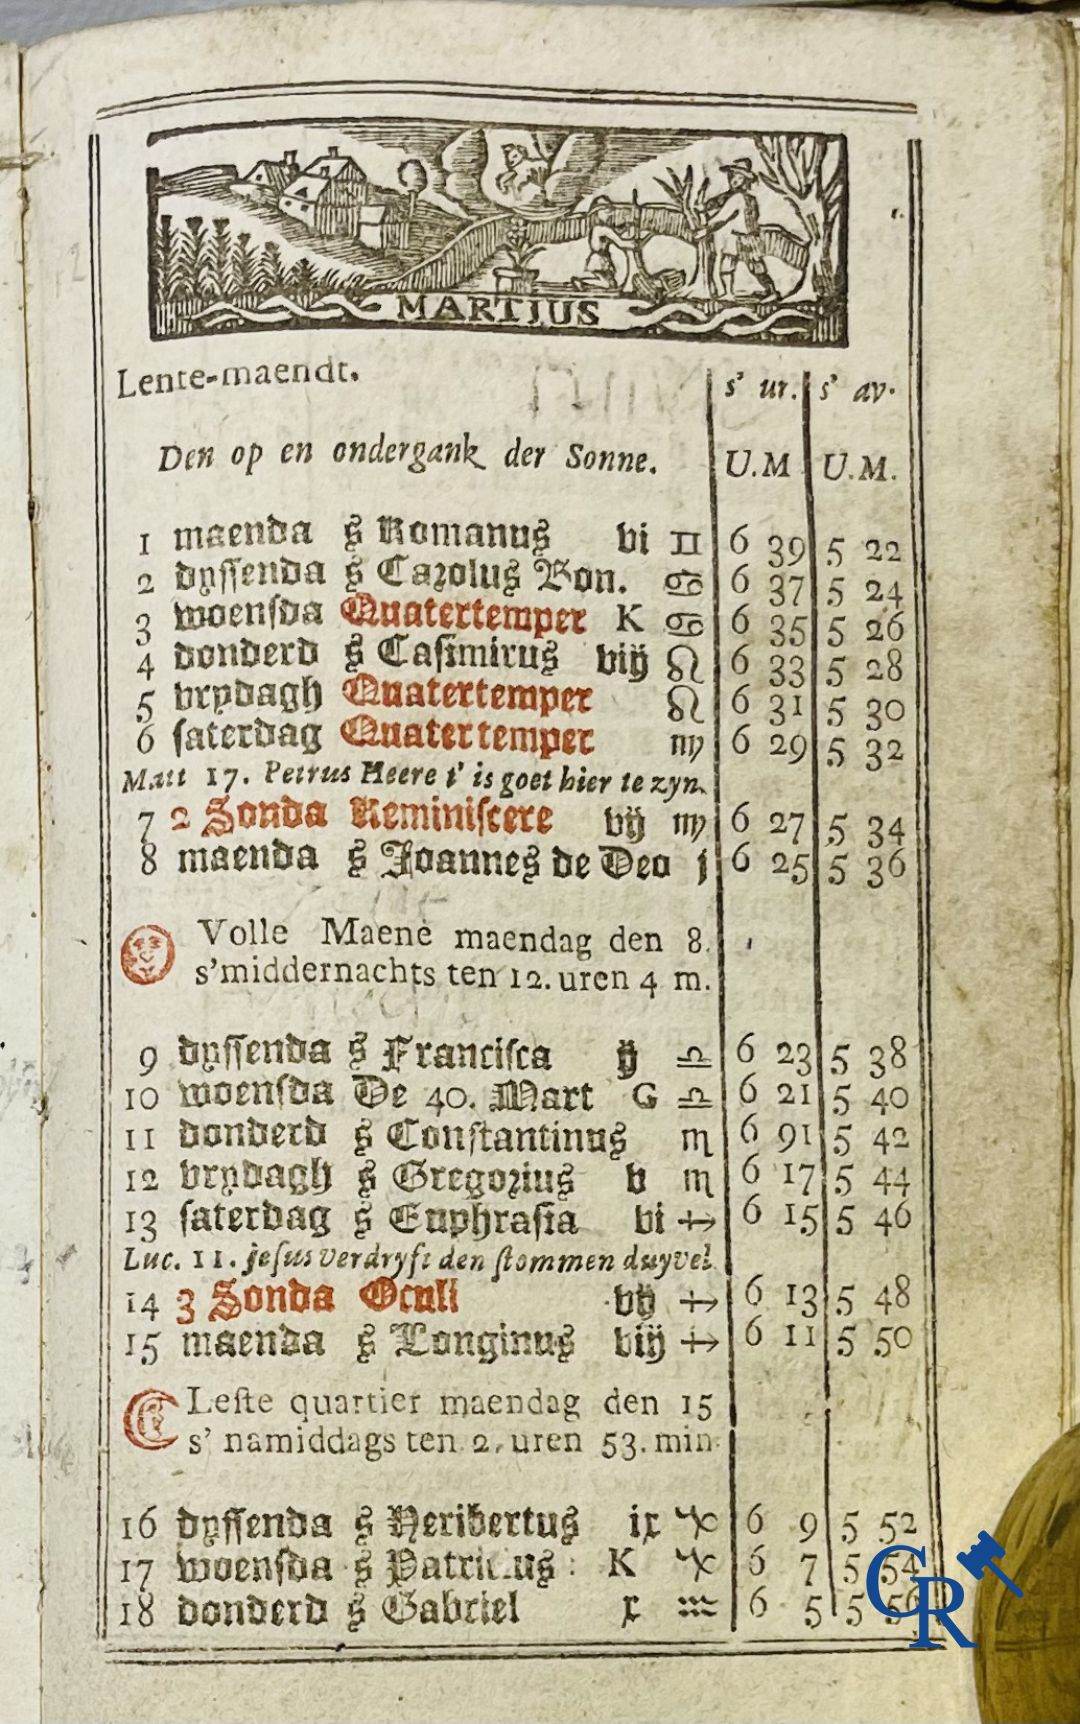 MARTIUS
Lente-maendt.
s' ur. s' av.
Den op en ondergank der Sonne. U.M U.M.
1 maenda s Romanus vi ♊ 6 39 5 22
2 dyssenda s Carolus Bon. ♋ 6 37 5 24
3 woensda Quatertemper K ♋ 6 35 5 26
4 donderd s Casimirus viij ♌ 6 33 5 28
5 vrydagh Quatertemper ♌ 6 31 5 30
6 saterdag Quatertemper ♍ 6 29 5 32
Matt 17. Petrus Heere t' is goet hier te zyn.
7 2 Sonda Reminiscere vij ♍ 6 27 5 34
8 maenda s Joannes de Deo j 6 25 5 36
Volle Maene maendag den 8.
s'middernachts ten 12. uren 4 m.
9 dyssenda s Francisca ij ♎ 6 23 5 38
10 woensda De 40. Mart G ♎ 6 21 5 40
11 donderd s Constantinus ♏ 6 91 5 42
12 vrydagh s Gregorius v ♏ 6 17 5 44
13 saterdag s Euphrasia vi ♐ 6 15 5 46
Luc. 11. jesus verdryft den stommen duyvel
14 3 Sonda Oculi vij ♐ 6 13 5 48
15 maenda s Longinus viij ♐ 6 11 5 50
Leste quartier maendag den 15
s' namiddags ten 2. uren 53. min
16 dyssenda s Heribertus ix ♑ 6 9 5 52
17 woensda s Patricius K ♑ 6 7 5 54
18 donderd s Gabriel x ♒ 6 5 5 56
GR